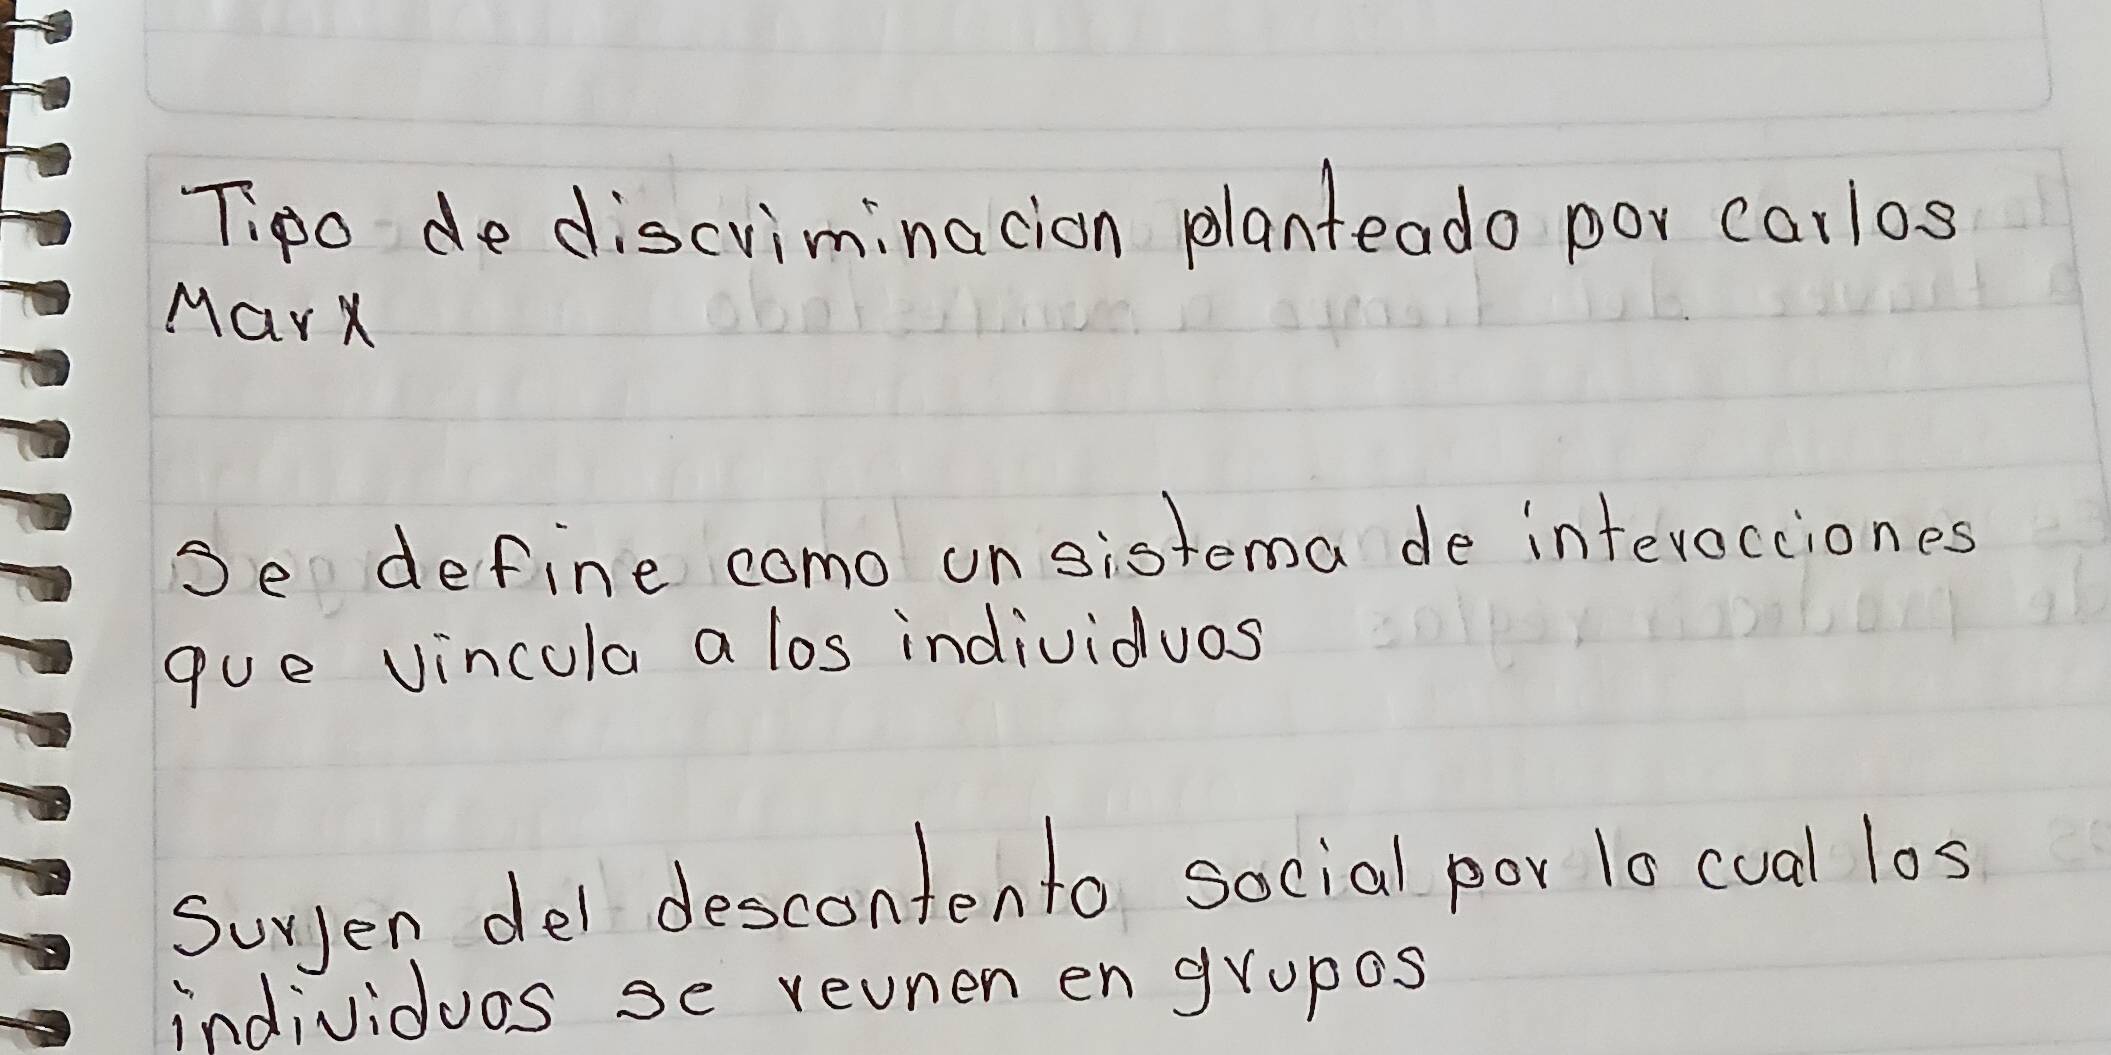 Tipo de discriminacion planteado por carlos
Marx
Se define como un sistema de interacciones
que vincula a los individuos
Surjen del descontento social por lo cual los
individuos se reunen en grupos